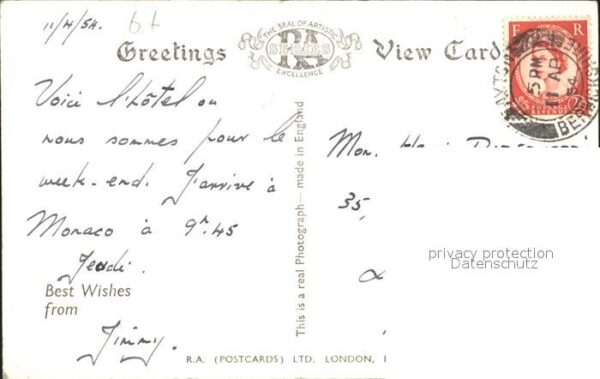 11/4/54.
THE SEAL OF ARTISTIC
RA
SERIES
EXCELLENCE
Greetings View Card
E R
5 PM
11 AP
54
POSTAGE
REVENUE
BERWICKSHIRE
Voici l'hôtel ou
nous sommes pour le
week-end. J'arrive à
Monaco à 9h.45
Jeudi.
Best Wishes
from
Jimmy.
This is a real Photograph — made in England
Mon.
35,
privacy protection
Datenschutz
R.A. (POSTCARDS) LTD. LONDON,